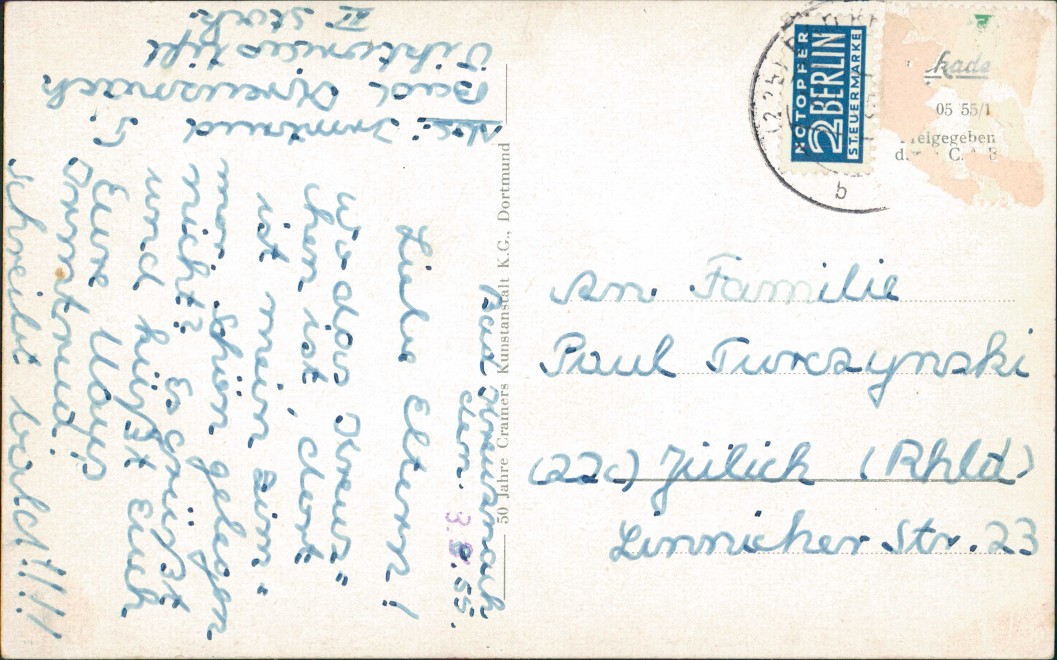 Bad Kreuznach,
den 3. .55.
Liebe Eltern!
Wo das Kreuz"
chen ist, dort
ist mein Zim"
mer. Schön gelegen
nicht? Es grüßt
und küßt Euch
Eure Maus
Irmtrud.
Schreibt bald!!!!
Abs.: Irmtrud T.
Bad Kreuznach
Viktoriastift
II Stock.
50 Jahre Cramers Kunstanstalt K.G., Dortmund
NOTOPFER
2 BERLIN
STEUERMARKE
b
05 55/1
eigegeben
An Familie
Paul Turczynski
(22c) Jülich (Rhld)
Linnicher Str. 23